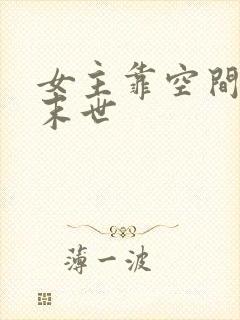 女主靠空间
末世
薄一波